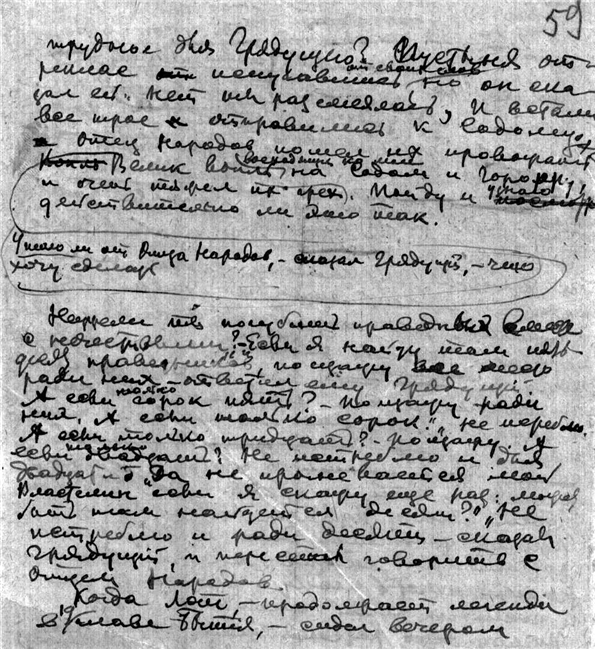 59
трудное для Грядущего? Пустыня от-
рекла от своих слов но он ска
зал ей: "нет ты рассмеялась", И встали
все трое и отправились к Садому,
а отец Народов пошел их провожать
Велик вопль восходящий ко мне на Содом и Гоморру,
и очень тяжел их грех. Пойду и узнаю
действительно ли это так.
Утаю ли от Отца Народов, - сказал Грядущий, - что
хочу сделать
Неужели ты погубишь праведных вместе
с нечестивыми? - Если я найду там пять
десят праведников, пощажу место
ради них - ответил ему Грядущий
А если сорок пять? - Пощажу ради
них. А если только сорок", не истреблю.
А если только тридцать? - Пощажу. А
если только двадцать? Не истреблю и для
двадцати. "Да не прогневается мой
Властелин если я скажу еще раз: может
быть там найдется десять?" "Не
истреблю и ради десяти - сказал
Грядущий, и перестал говорить с
Отцом Народов.
Когда Лот, - продолжает легенда
в 19 главе Бытия, - сидел вечером